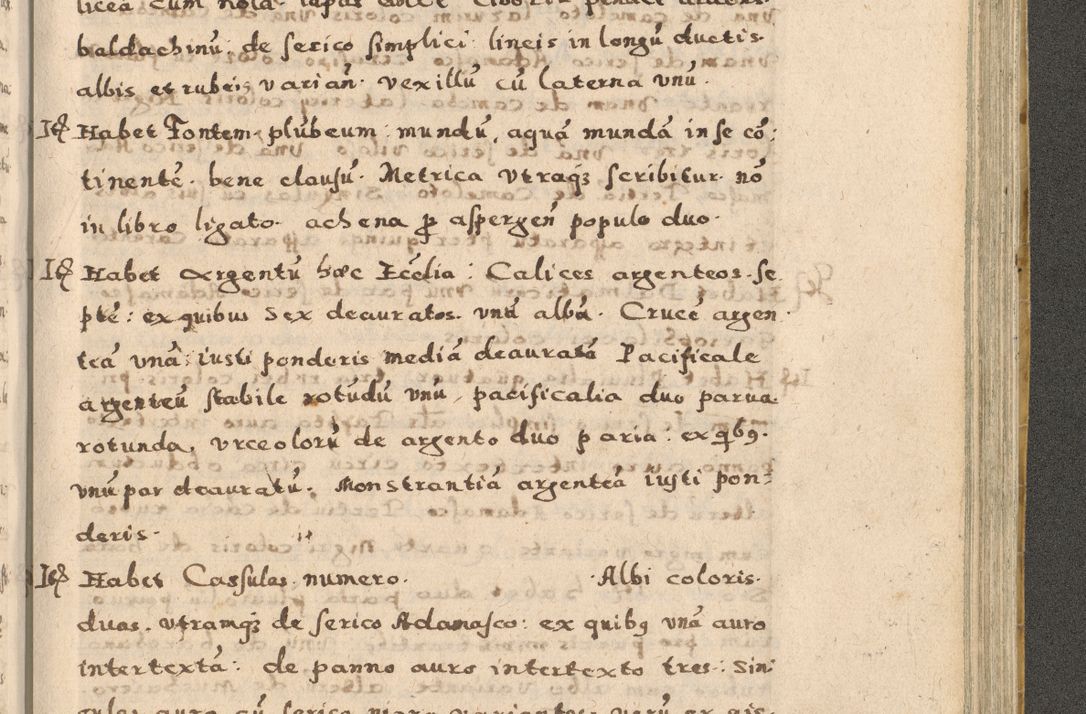 licea cum nola. lapas ante Ciboriu pendet
baldachinũ. de serico simplici. lineis in longũ ductis.
albis et rubeis varian̄. vexillũ cũ laterna vnũ.
Itẽ Habet Fontem plũbeum. mundũ, aquã mundã in se cõ:
tinentẽ. bene clausũ. Metrica vtraq3 scribitur. nõ
in libro ligato. achena ꝓ aspergen̄ populo duo.
Itẽ Habet Argentũ hæc Ecẽlia: Calices argenteos. se
ptẽ: ex quibus sex deauratos. vnũ albũ. Crucẽ argen.
teã vnã: iusti ponderis mediã deauratã Pacificale
argenteũ stabile rotũdũ vnũ, pacificalia duo parua
rotunda, vrceolorũ de argento duo paria: ex q̃bꝰ.
vnũ par deauratũ. Monstrantiã argenteã iusti pon:
deris.
Itẽ Habet Cassulas numero. Albi coloris.
duas, vtramq3 de serico Adamasco: ex quibꝰ vnã auro
intertextã: de panno auro intertexto tres: Sin:
gulas auro cũ serico nigro variantes, verũ ex